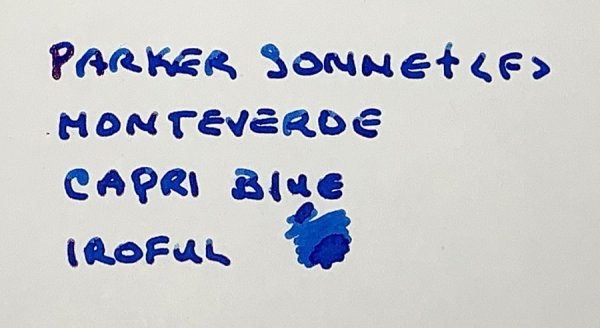 PARKER SONNEt <F>
MONTEVERDE
CAPRI BluE
IROFUL